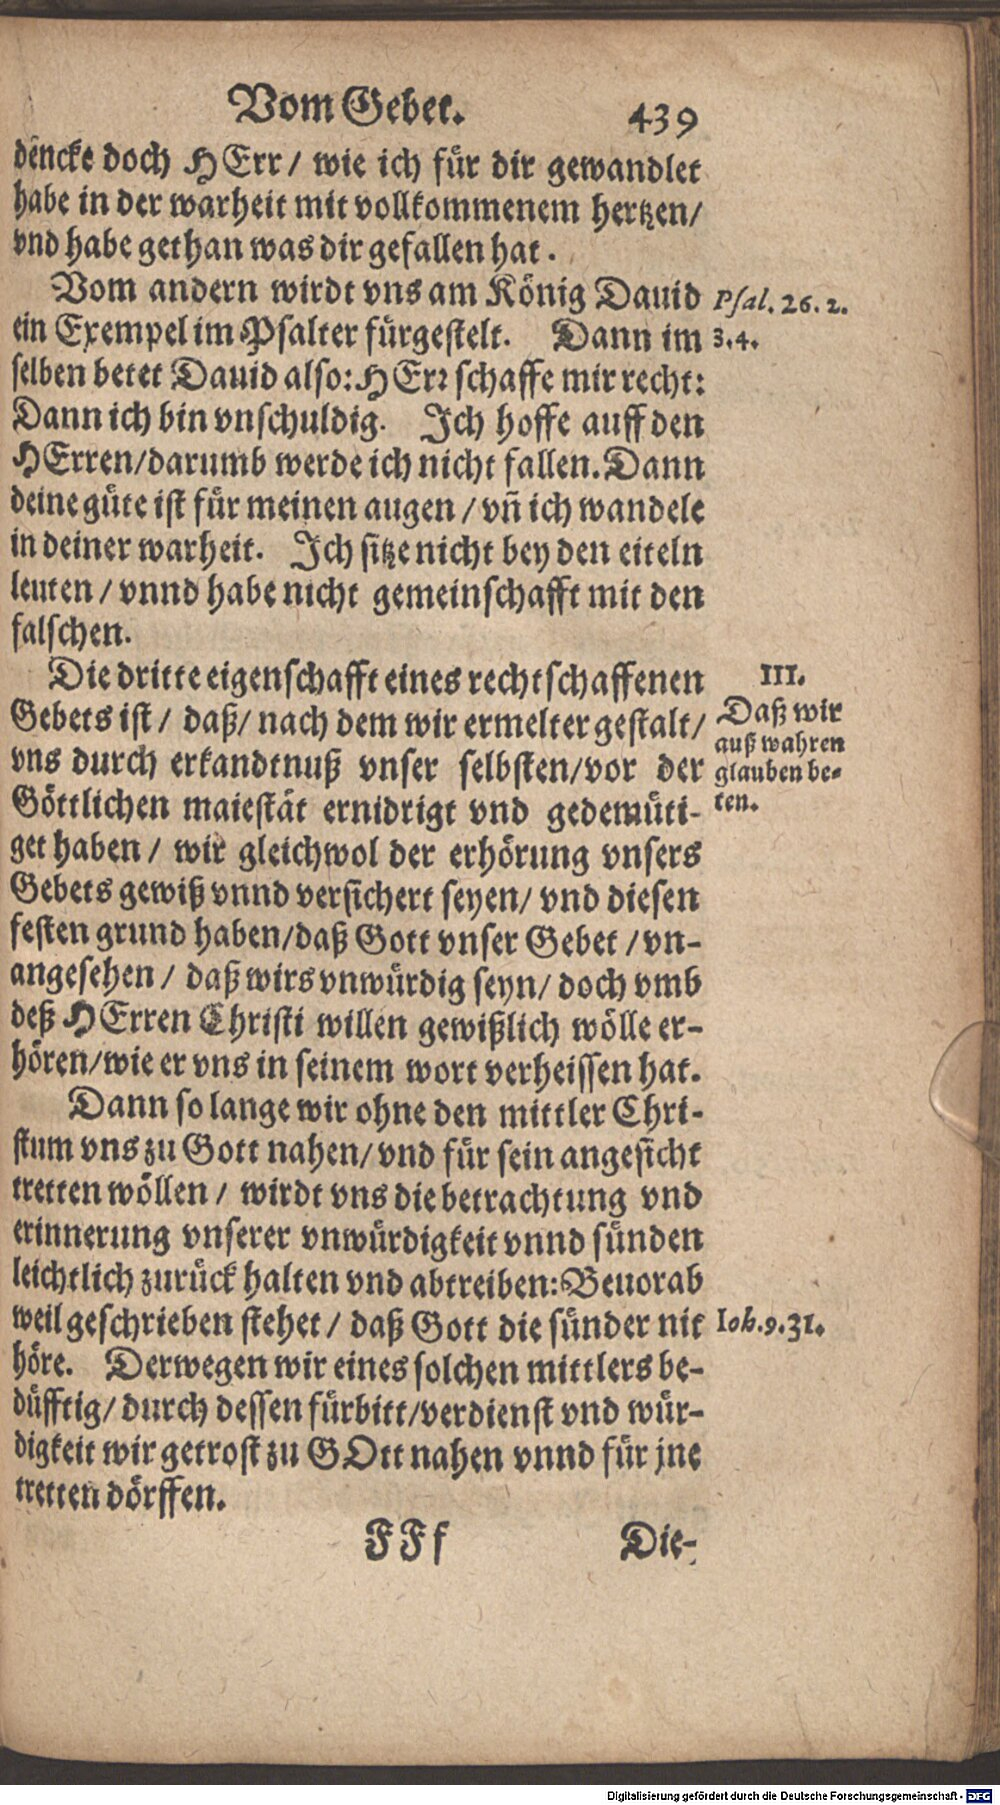 Vom Gebet. 439
dencke doch HErr / wie ich für dir gewandlet
habe in der warheit mit vollkommenem hertzen /
vnd habe gethan was dir gefallen hat.
Vom andern wirdt vns am König Dauid
Psal. 26. 2.
ein Exempel im Psalter fürgestelt. Dann im
3. 4.
selben betet Dauid also: HErr schaffe mir recht:
Dann ich bin vnschuldig. Ich hoffe auff den
HErren / darumb werde ich nicht fallen. Dann
deine güte ist für meinen augen / vñ ich wandele
in deiner warheit. Ich sitze nicht bey den eiteln
leuten / vnnd habe nicht gemeinschafft mit den
falschen.
Die dritte eigenschafft eines rechtschaffenen
Gebets ist / daß / nach dem wir ermelter gestalt /
vns durch erkandtnuß vnser selbsten / vor der
Göttlichen maiestät ernidrigt vnd gedemüti-
get haben / wir gleichwol der erhörung vnsers
Gebets gewiß vnnd versichert seyen / vnd diesen
festen grund haben / daß Gott vnser Gebet / vn-
angesehen / daß wirs vnwürdig seyn / doch vmb
deß HErren Christi willen gewißlich wölle er-
hören / wie er vns in seinem wort verheissen hat.
III.
Daß wir
auß wahren
glauben be-
ten.
Dann so lange wir ohne den mittler Chri-
stum vns zu Gott nahen / vnd für sein angesicht
tretten wöllen / wirdt vns die betrachtung vnd
erinnerung vnserer vnwürdigkeit vnnd sünden
leichtlich zurück halten vnd abtreiben: Beuorab
weil geschrieben stehet / daß Gott die sünder nit
Ioh. 9. 31.
höre. Derwegen wir eines solchen mittlers be-
düfftig / durch dessen fürbitt / verdienst vnd wür-
digkeit wir getrost zu GOtt nahen vnnd für jne
tretten dörffen.
FFf Die-
Digitalisierung gefördert durch die Deutsche Forschungsgemeinschaft - DFG